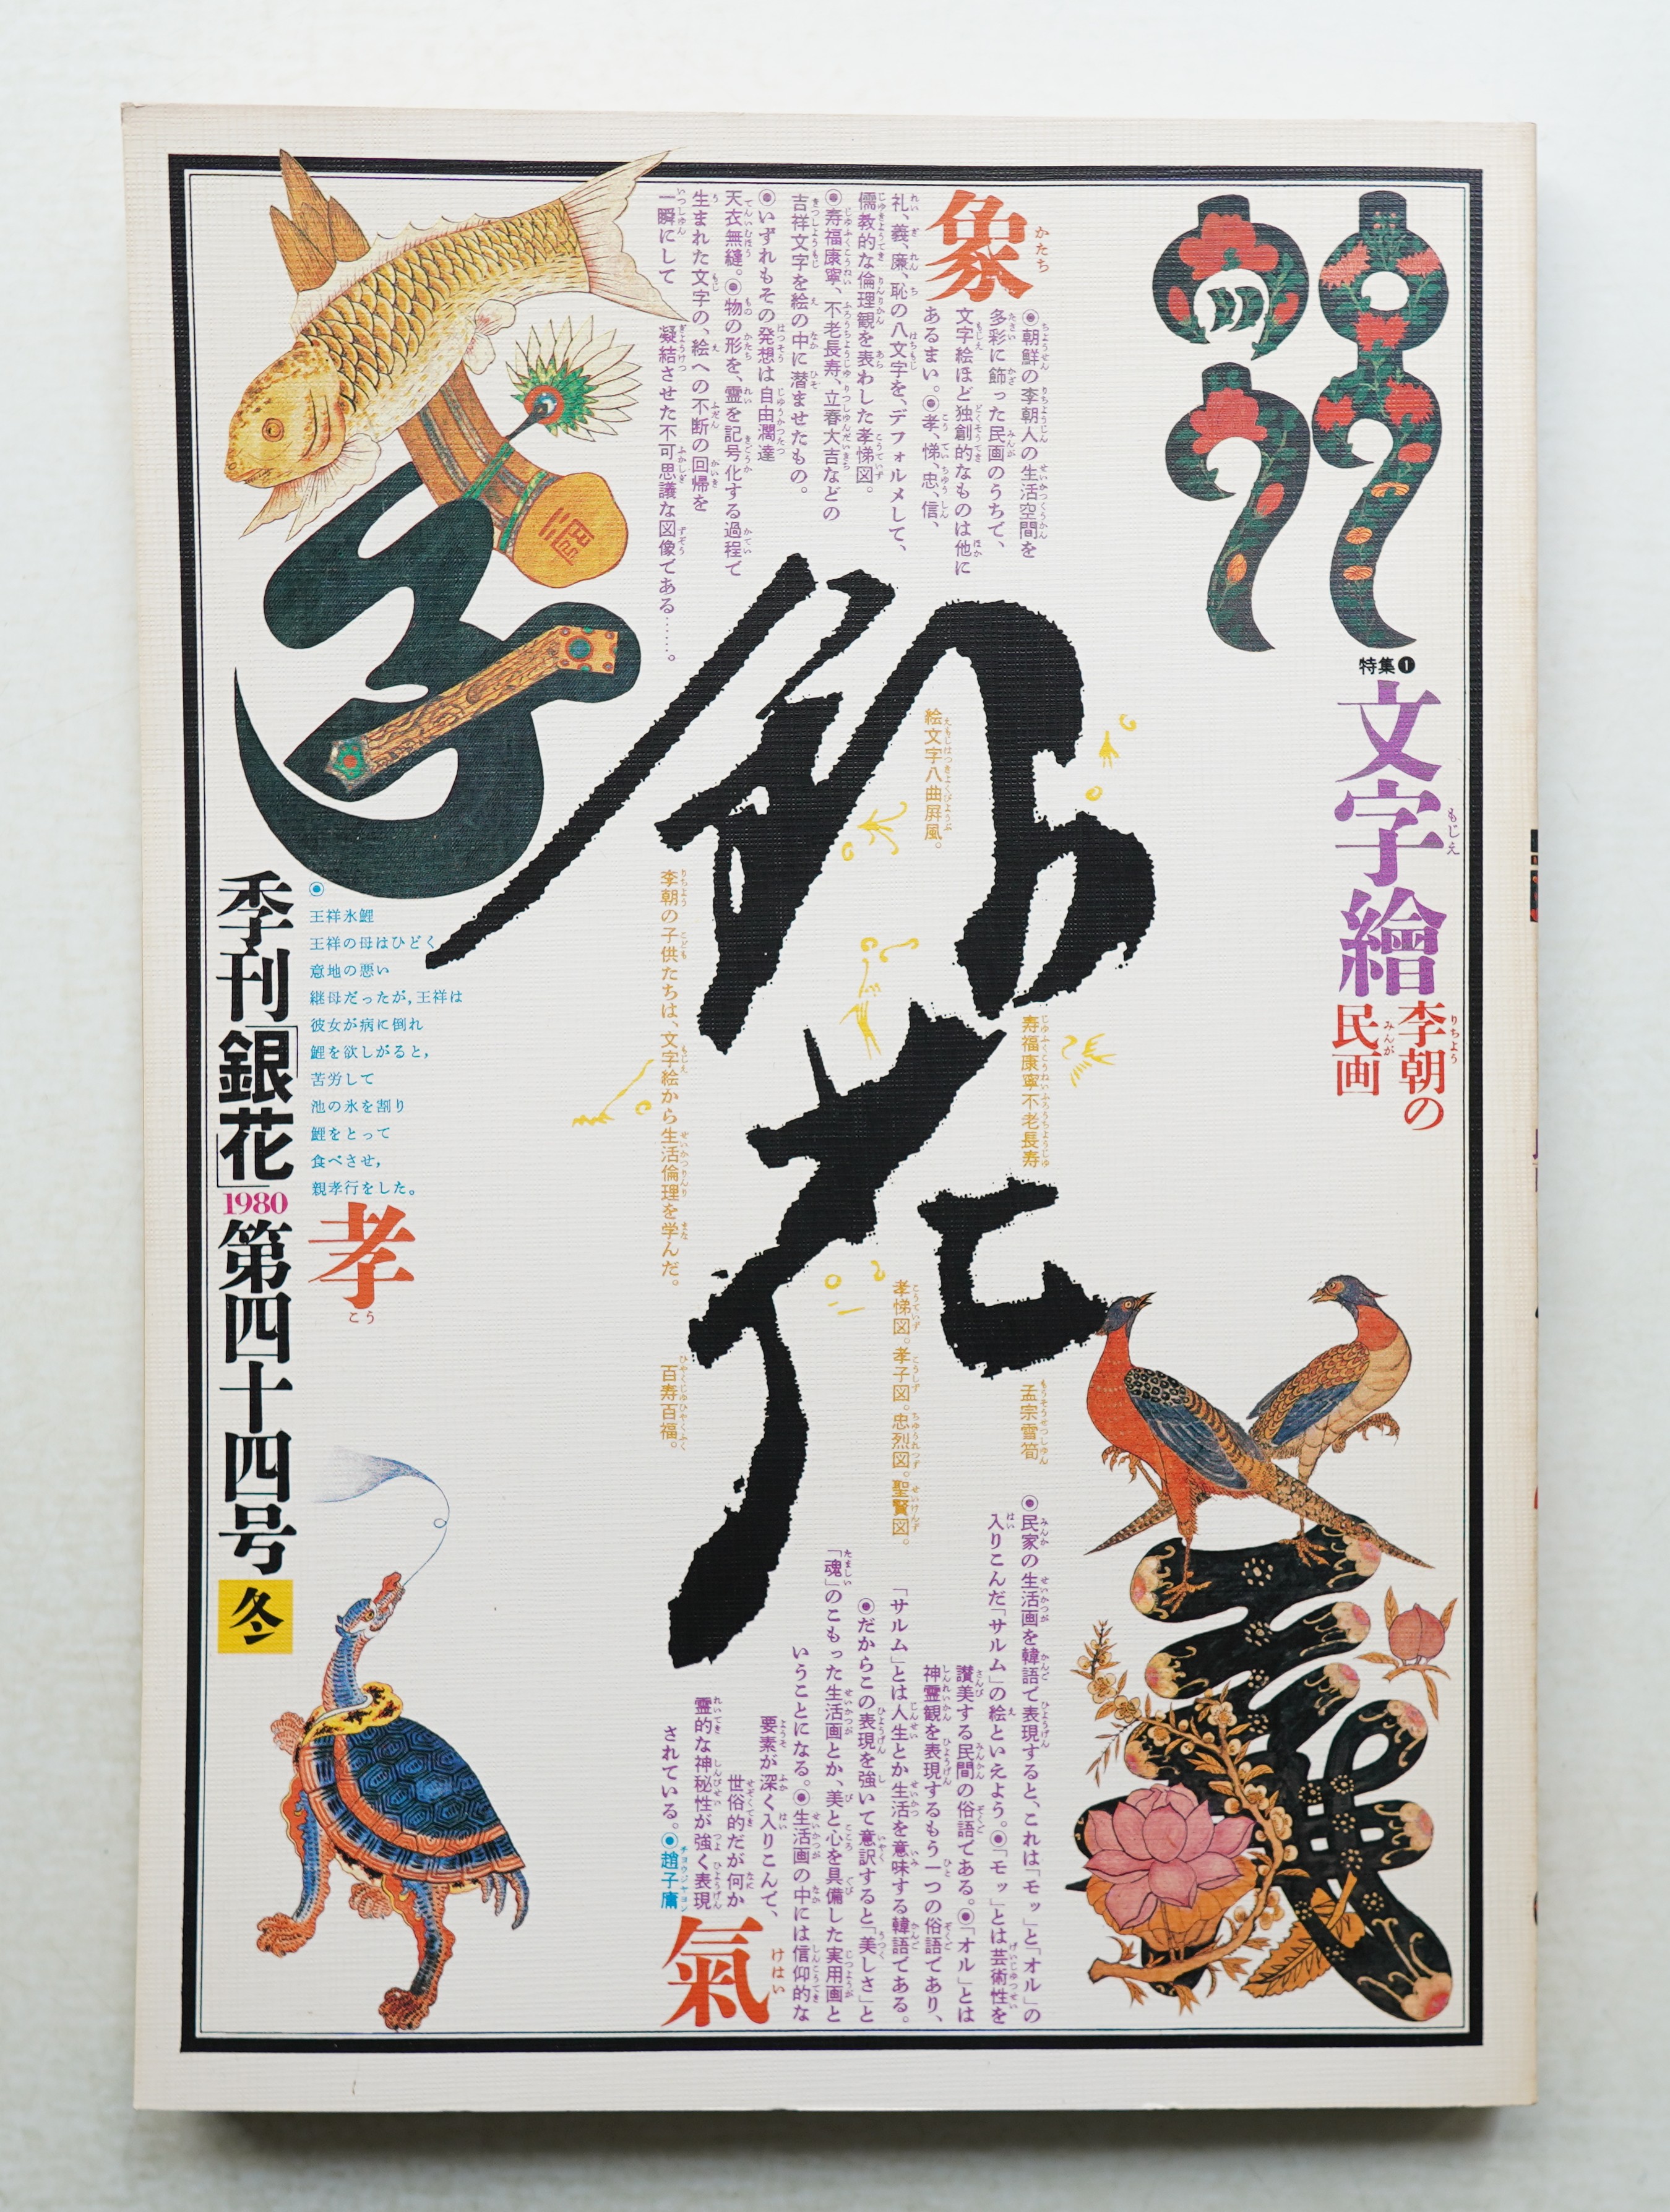 特集❶
文字繪
もじえ
李朝の
りちょう
民画
みんが
象
かたち
◉朝鮮の李朝人の生活空間を
多彩に飾った民画のうちで、
文字絵ほど独創的なものは他に
あるまい。◉孝、悌、忠、信、
礼、義、廉、恥の八文字を、デフォルメして、
儒教的な倫理観を表わした孝悌図。
◉寿福康寧、不老長寿、立春大吉などの
吉祥文字を絵の中に潜ませたもの。
◉いずれもその発想は自由濶達
天衣無縫。◉物の形を、霊を記号化する過程で
生まれた文字の、絵への不断の回帰を
一瞬にして 凝結させた不可思議な図像である……。
銀花
絵文字八曲屛風。
寿福康寧不老長寿
李朝の子供たちは、文字絵から生活倫理を学んだ。
孝悌図。孝子図。忠烈図。聖賢図。
孟宗雪筍
百寿百福。
◉
王祥氷鯉
王祥の母はひどく
意地の悪い
継母だったが,王祥は
彼女が病に倒れ
鯉を欲しがると,
苦労して
池の氷を割り
鯉をとって
食べさせ,
親孝行をした。
孝
こう
季刊「銀花」1980第四十四号 冬
◉民家の生活画を韓語で表現すると、これは「モッ」と「オル」の
入りこんだ「サルム」の絵といえよう。◉「モッ」とは芸術性を
讃美する民間の俗語である。◉「オル」とは
神霊観を表現するもう一つの俗語であり、
「サルム」とは人生とか生活を意味する韓語である。
◉だからこの表現を強いて意訳すると「美しさ」と
「魂」のこもった生活画とか、美と心を具備した実用画と
いうことになる。◉生活画の中には信仰的な
要素が深く入りこんで、
世俗的だが何か
霊的な神秘性が強く表現
されている。◉趙子庸
氣
けはい